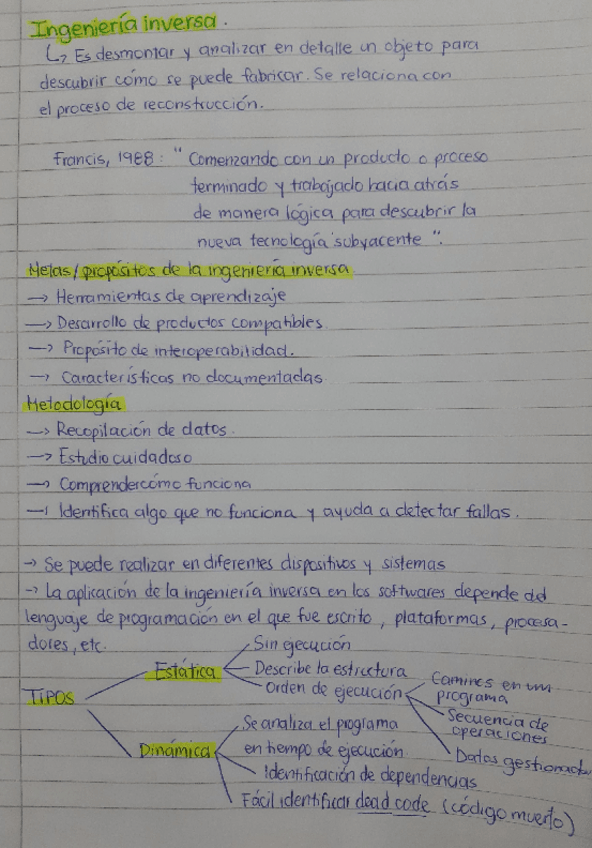 Ingeniería inversa.
↳ Es desmontar y analizar en detalle un objeto para
descubrir cómo se puede fabricar. Se relaciona con
el proceso de reconstrucción.
Francis, 1988: "Comenzando con un producto o proceso
terminado y trabajado hacia atrás
de manera lógica para descubrir la
nueva tecnología subyacente".
Metas/propósitos de la ingeniería inversa
→ Herramientas de aprendizaje
→ Desarrollo de productos compatibles
→ Propósito de interoperabilidad.
→ Características no documentadas
Metodología
→ Recopilación de datos.
→ Estudio cuidadoso
→ Comprender cómo funciona
→ Identifica algo que no funciona y ayuda a detectar fallas.
→ Se puede realizar en diferentes dispositivos y sistemas
→ La aplicación de la ingeniería inversa en los softwares depende del
lenguaje de programación en el que fue escrito, plataformas, procesa-
dores, etc.
TIPOS
Estática
Sin ejecución
Describe la estructura
Orden de ejecución
Camines en un
programa
Secuencia de
operaciones
Datos gestionados
Dinámica
Se analiza el programa
en tiempo de ejecución
Identificación de dependencias
Fácil identificar dead code (código muerto)